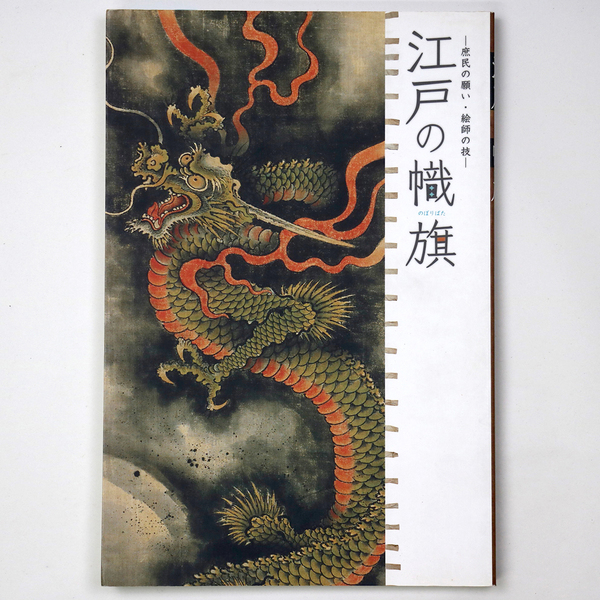 江戸の幟旗
のぼりばた
―庶民の願い・絵師の技―